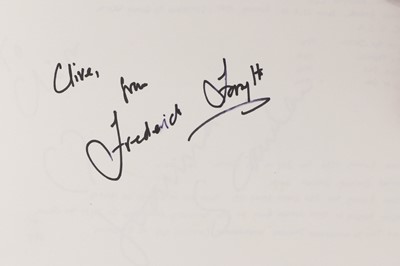 Clive,
from
Frederick Forsyth